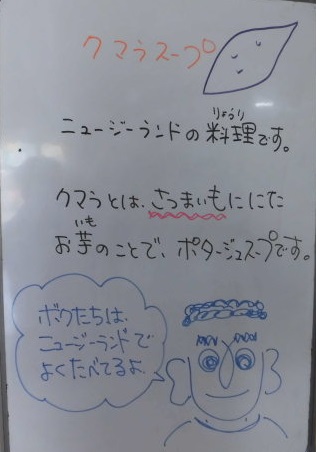 クマラスープ
ニュージーランドの料理です。
りょうり
クマラとは、さつまいもににた
お芋のことで、ポタージュスープです。
いも
ボクたちは、
ニュージーランドで
よくたべてるよ